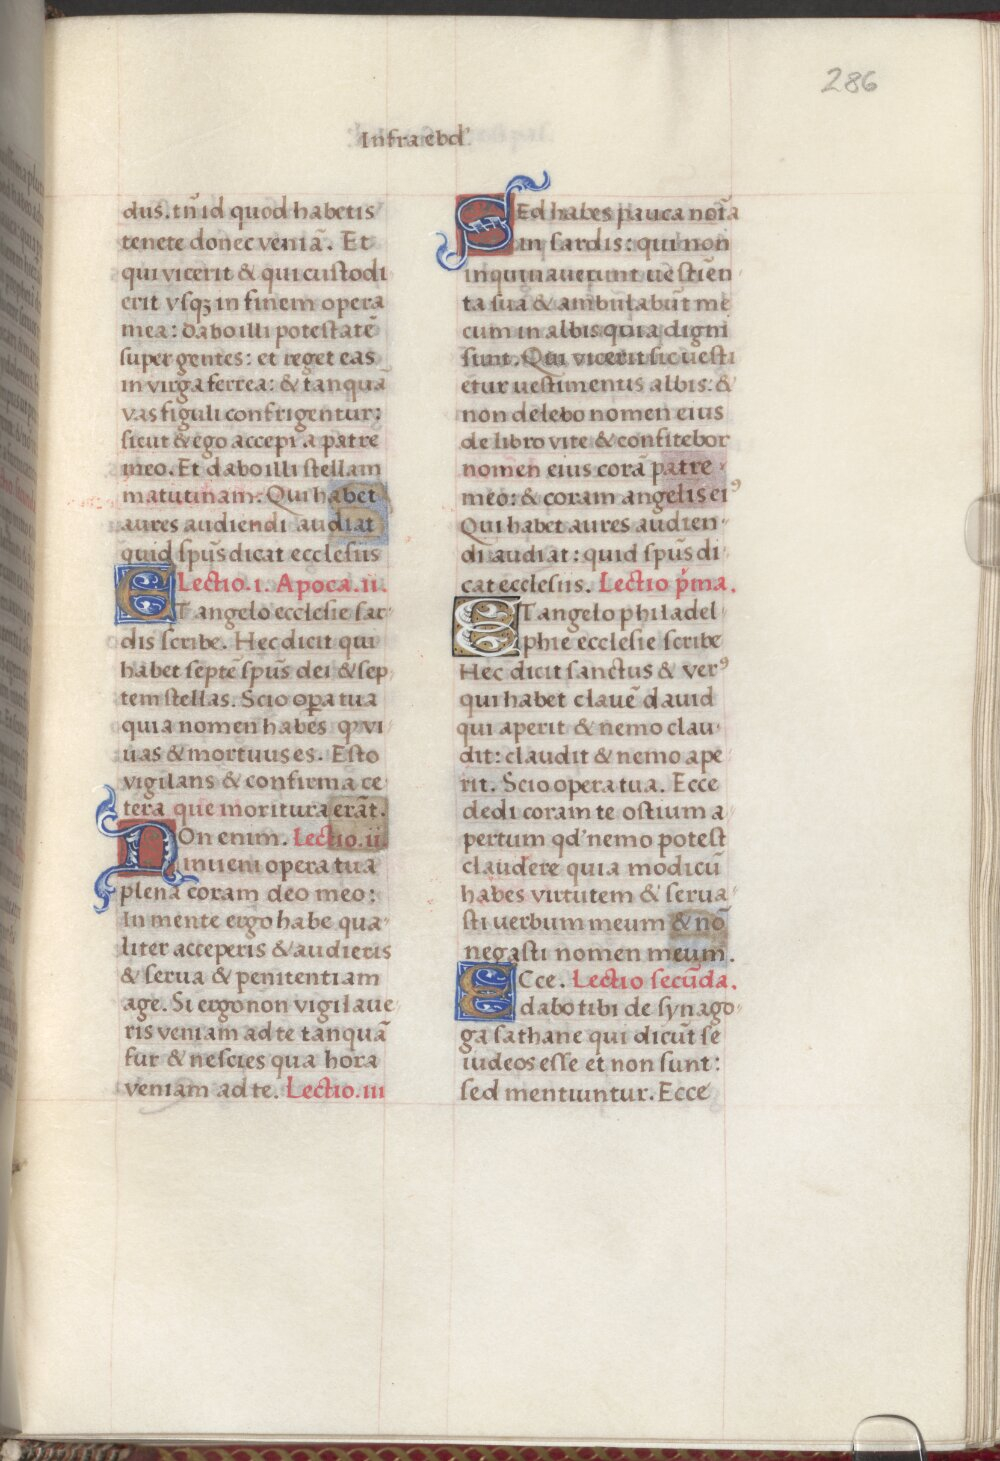 286
Infra ebd'.
dus. tn̄ id quod habetis
tenete donec veniā. Et
qui vicerit & qui custodi
erit vsqꝫ in finem opera
mea: dabo illi potestatē
super gentes: et reget eas
in virga ferrea: & tanquā
vas figuli confrigentur:
sicut & ego accepi a patre
meo. Et dabo illi stellam
matutinam: Qui habet
aures audiendi audiat
quid sp̄us dicat ecclesiis
Lectio. I. Apoca. II.
ET angelo ecclesie sar-
dis scribe. Hec dicit qui
habet septē sp̄us dei & sep
tem stellas. Scio opa tua
quia nomen habes ꝙ vi
uas & mortuus es. Esto
vigilans & confirma ce
tera que moritura erāt.
NOn enim. Lectio. ii
inueni opera tua
plena coram deo meo:
In mente ergo habe qua-
liter acceperis & audieris
& serua & penitentiam
age. Si ergo non vigilaue-
ris veniam ad te tanquā
fur & nescies qua hora
veniam ad te. Lectio. III
SEd habes pauca noīa
in sardis: qui non
inquinauerunt uestīen-
ta sua & ambulabūt me
cum in albis quia digni
sunt. Qui vicerit sic uesti
etur uestimentis albis: &
non delebo nomen eius
de libro vite & confitebor
nomen eius corā patre
meo: & coram angelis ei⁹
Qui habet aures audien-
di audiat: quid sp̄us di-
cat ecclesiis. Lectio p̄ma.
ET angelo philadel-
phie ecclesie scribe
Hec dicit sanctus & ver⁹
qui habet clauē dauid
qui aperit & nemo clau-
dit: claudit & nemo ape
rit. Scio opera tua. Ecce
dedi coram te ostium a-
pertum qd' nemo potest
claudere quia modicū
habes virtutem & serua-
sti uerbum meum & nō
negasti nomen meum.
ECce. Lectio secūda.
dabo tibi de synago-
ga sathane qui dicūt se
iudeos esse et non sunt:
sed mentiuntur. Ecce